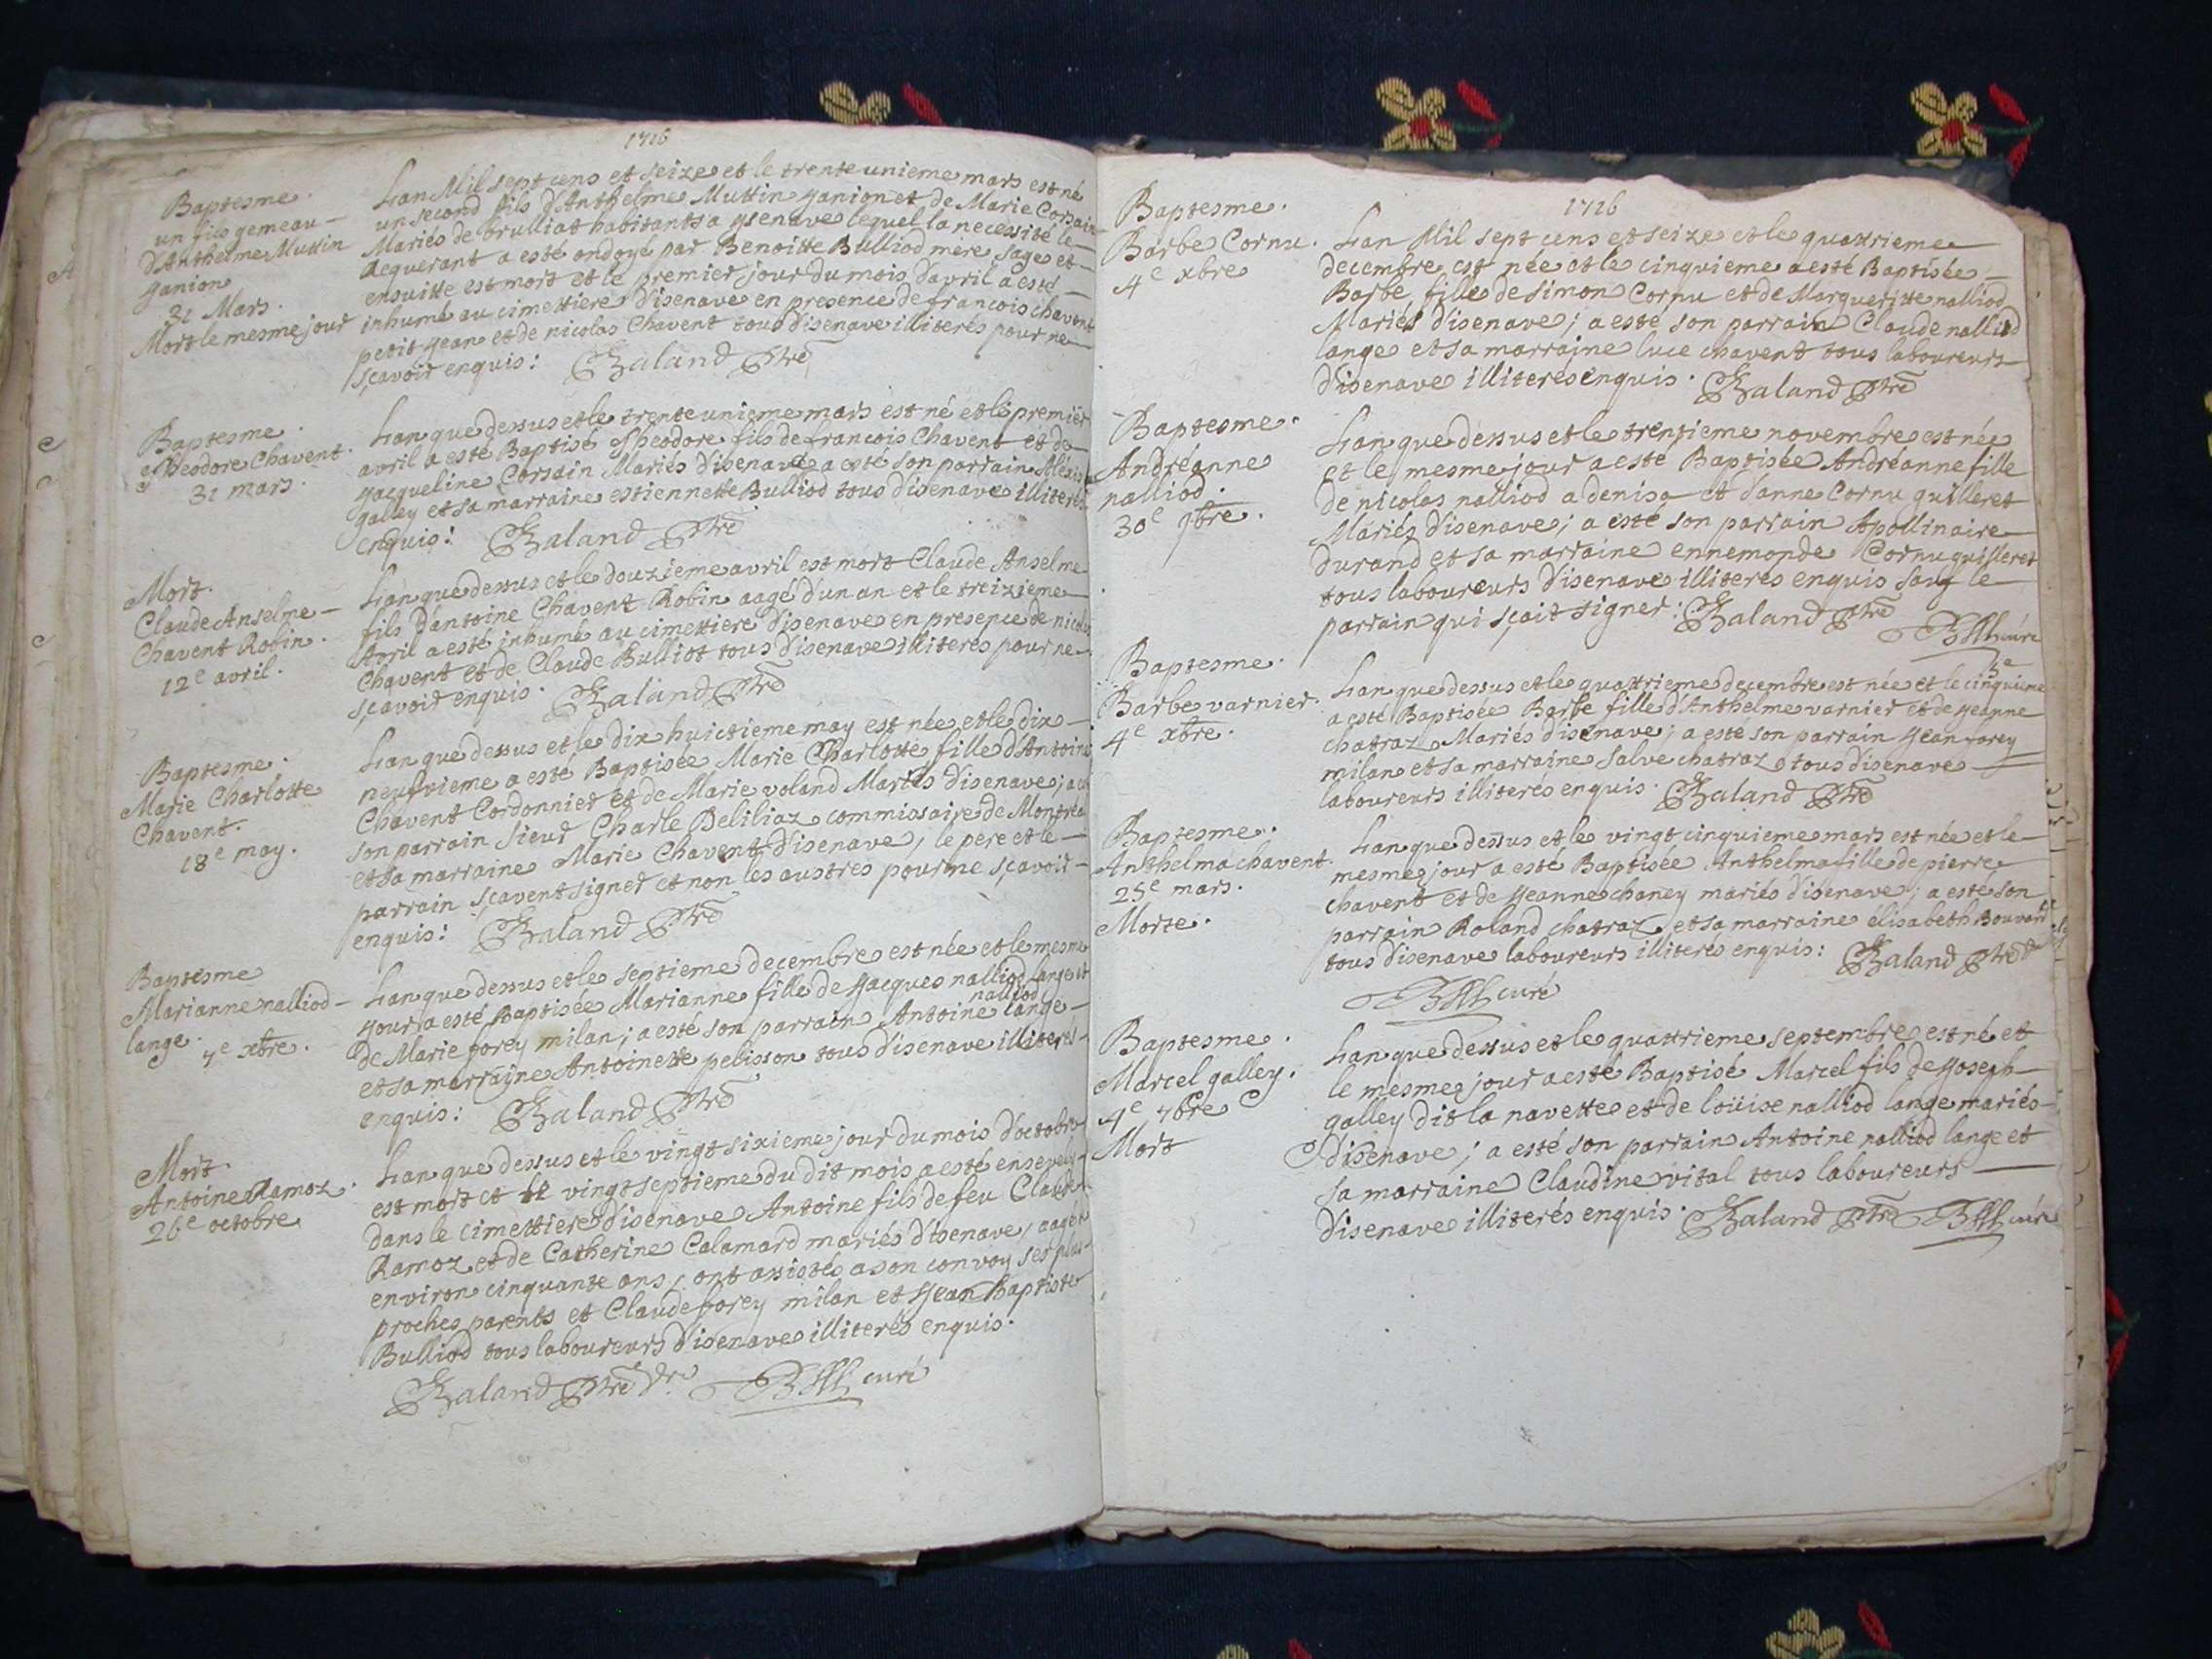 1716
Baptesme.
un fils gemeau
d'Anthelme Muttin
Janion
31 Mars.
Mort le mesme jour
L'an Mil sept cens et seize et le trente unieme mars est né
un second fils d'Anthelme Muttin Janion et de Marie Corsain
Mariés de brulliat habitants a ysenave lequel la necessité le
requerant a esté ondoyé par Benoitte Bulliod mere sage et
ensuitte est mort et le premier jour du mois d'avril a esté
inhumé au cimettiere d'isenave en presence de francois chavent
petit jean et de nicolas Chavent tous d'isenave illiterés pour ne
sçavoir enquis: Baland Ptre
Baptesme.
Theodore Chavent.
31 mars.
L'an que dessus et le trente unieme mars est né et le premier
avril a esté Baptisé Theodore fils de francois Chavent et de
Jacqueline Corsain Mariés d'isenave a esté son parrain
galley et sa marraine estiennette Bulliod tous d'isenave illiterés
enquis: Baland Ptre
Mort.
Claude Anselme
Chavent Robin.
12e avril.
L'an que dessus et le douzieme avril est mort Claude Anselme
fils d'antoine Chavent Robin aagé d'un an et le treizieme
Avril a esté inhumé au cimettiere d'isenave en presence de nicolas
Chavent et de Claude Bulliot tous d'isenave illiteres pour ne
sçavoir enquis. Baland Ptre
Baptesme.
Marie Charlotte
Chavent.
18e may.
L'an que dessus et le dix huictieme may est née et le dix
neufvieme a esté Baptisée Marie Charlotte fille d'Antoine
Chavent Cordonnier et de Marie voland Mariés d'isenave; a esté
son parrain sieur Charle Deliliaz commissaire de Montreal
et sa marraine Marie Chavent d'isenave; le pere et le
parrain sçavent signer et non les austres pour ne sçavoir
enquis: Baland Ptre
Baptesme
Marianne nalliod
lange.
7e xbre.
L'an que dessus et le septieme decembre est née et le mesme
jour a esté Baptisée Marianne fille de Jacques nalliod lange et
de Marie forey milan; a esté son parrain Antoine nalliod lange
et sa marrajne Antoinette pelisson tous d'isenave illiterés
enquis: Baland Ptre
Mort.
Antoine Ramoz.
26e octobre
L'an que dessus et le vingt sixieme jour du mois d'octobre
est mort et le vingt septieme du dit mois a esté ensevely
dans le cimettiere d'isenave Antoine fils de feu Claude
Ramoz et de Catherine Calamard mariés d'isenave, aagé d
environ cinquante ans, ont assistés a son convoy ses plus
proches parents et Claude forey milan et Jean Baptiste
Bulliod tous laboureurs d'isenave illiterés enquis.
Baland Ptre curé
1716
Baptesme.
Barbe Cornu.
4e xbre
L'an Mil sept cens et seize et le quattrieme
decembre est née et le cinquieme a esté Baptisée
Barbe, fille de simon Cornu et de Marguerite nalliod
Mariés d'isenave; a esté son parrain Claude nalliod
lange et sa marrajne luce chavent tous laboureurs
d'isenave illiteres enquis. Baland Ptre
Baptesme.
Andréanne
nalliod.
30e 9bre.
L'an que dessus et le trentieme novembre est née
et le mesme jour a esté Baptisée Andréanne fille
de nicolas nalliod a denisa et d'anne Cornu quilleret
Mariés d'isenave; a esté son parrain Apollinaire
Durand et sa marraine ennemonde Cornu quilleret
tous laboureurs d'isenave illiteres enquis sauf le
parrain qui sçait signer: Baland Ptre
curé
Baptesme.
Barbe varnier.
4e xbre.
L'an que dessus et le quattrieme decembre est née et le cinquieme
a esté Baptisée Barbe fille d'Anthelme varnier et de Jeanne
chatraz Mariés d'isenave; a esté son parrain Jean forey
milan et sa marraine salve chatraz tous d'isenave
laboureurs illiterés enquis. Baland Ptre
Baptesme.
Anthelma chavent.
25e mars.
Morte.
L'an que dessus et le vingt cinquieme mars est née et le
mesme jour a esté Baptisée Anthelma fille de pierre
chavent et de Jeanne chaney mariés d'isenave; a esté son
parrain Roland chatraz et sa marraine élisabeth Bouvard
tous d'isenave laboureurs illiterés enquis: Baland Ptre
curé
Baptesme.
Marcel galley.
4e 7bre
Mort
L'an que dessus et le quattrieme septembre est né et
le mesme jour a esté Baptisé Marcel fils de Joseph
galley dit la navette et de loüise nalliod lange mariés
d'isenave; a esté son parrain Antoine nalliod lange et
sa marraine Claudine vital tous laboureurs
d'isenave illiterés enquis. Baland Ptre curé